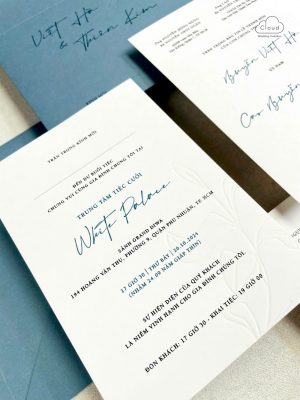 Cloud
Việt Hà
& Thiên Kim
TRÂN TRỌNG KÍNH MỜI
ĐẾN DỰ BUỔI TIỆC
CHUNG VUI CÙNG GIA ĐÌNH CHÚNG TÔI TẠI
TRUNG TÂM TIỆC CƯỚI
White Palace
SẢNH GRAND DIWA
194 HOÀNG VĂN THỤ, PHƯỜNG 9, QUẬN PHÚ NHUẬN, TP. HCM
17 GIỜ 30 | THỨ BẢY | 26.10.2024
(NHẰM 24 09 NĂM GIÁP THÌN)
SỰ HIỆN DIỆN CỦA QUÝ KHÁCH
LÀ NIỀM VINH HẠNH CHO GIA ĐÌNH CHÚNG TÔI.
ĐÓN KHÁCH: 17 GIỜ 30 - KHAI TIỆC: 19 GIỜ 00
Việt Hà
ÚT NAM
Cao